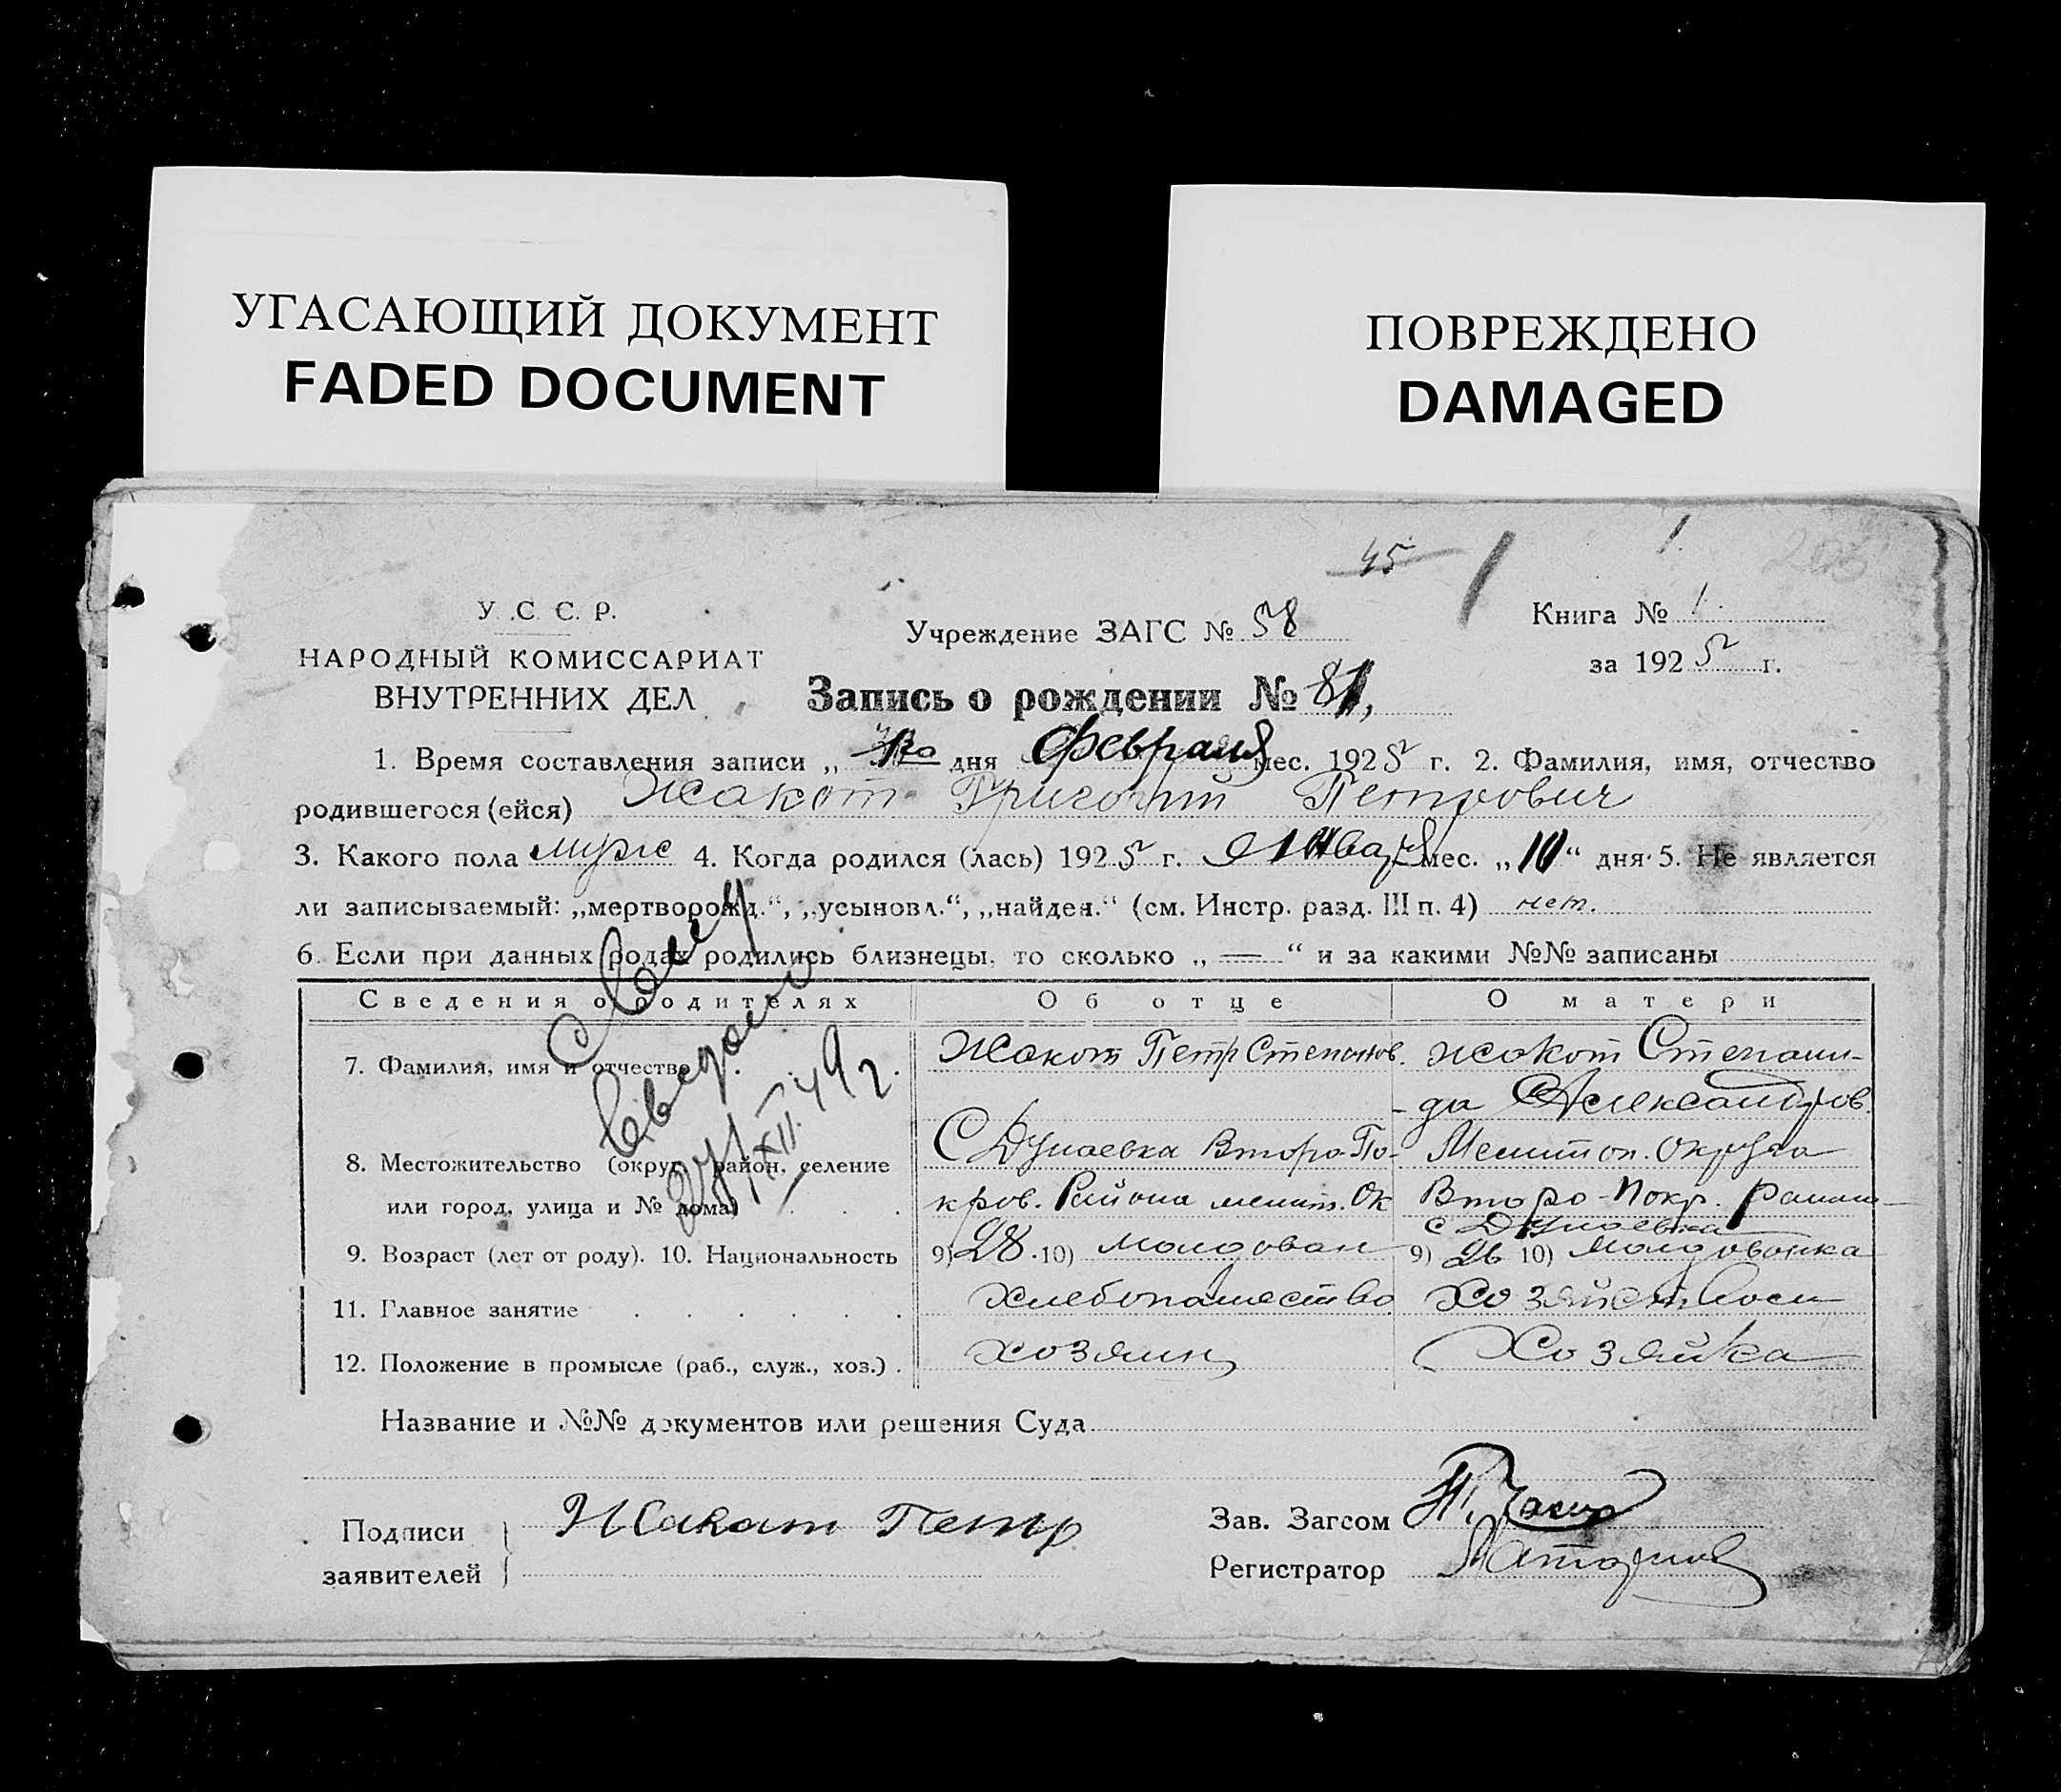 УГАСАЮЩИЙ ДОКУМЕНТ
FADED DOCUMENT
ПОВРЕЖДЕНО
DAMAGED
45
1.
У.С.С.Р.
НАРОДНЫЙ КОМИССАРИАТ
ВНУТРЕННИХ ДЕЛ
Учреждение ЗАГС № 58
Книга № 1.
за 1925 г.
Запись о рождении № 81,
1. Время составления записи „ дня Февраля мес. 1925 г. 2. Фамилия, имя, отчество
родившегося (ейся) Жакот Григорий Петрович
3. Какого пола муж 4. Когда родился (лась) 1925 г. Январ мес. „10“ дня 5. Не является
ли записываемый: „мертворожд.“, „усыновл.“, „найден.“ (см. Инстр. разд. III п. 4) нет.
6. Если при данных родах родились близнецы, то сколько „ — “ и за какими №№ записаны
Сведения о родителях Об отце О матери
7. Фамилия, имя и отчество Жакот Петр Степанов. Жакот Степани-
-да Александров.
8. Местожительство (округ, район, селение С Дунаевка Второ-По- Мелитоп. Округа
или город, улица и № дома) кров. Района мелит. Ок Второ-Покр. район
с Дунаевка
9. Возраст (лет от роду). 10. Национальность 9) 28. 10) молдован 9) 26 10) молдованка
11. Главное занятие хлебопашество
12. Положение в промысле (раб., служ., хоз.) хозяин Хозяйка
Название и №№ документов или решения Суда
Подписи
заявителей
Жакот Петр
Зав. Загсом
Регистратор